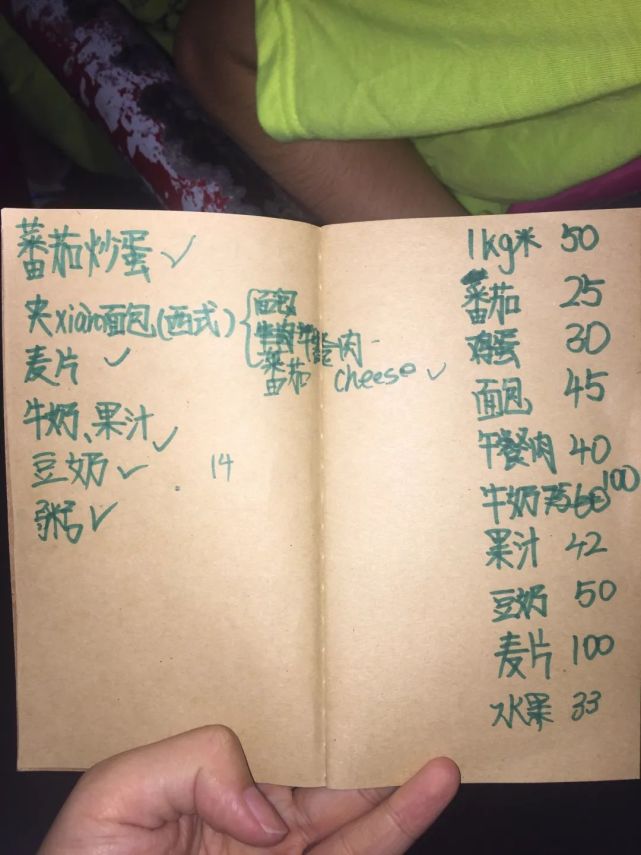 番茄炒蛋 ✓
夹xian面包(西式)
面包
午餐肉
番茄
cheese ✓
麦片 ✓
牛奶、果汁 ✓
豆奶 ✓
14
粥 ✓
1kg米 50
番茄 25
鸡蛋 30
面包 45
午餐肉 40
牛奶 100
果汁 42
豆奶 50
麦片 100
水果 33